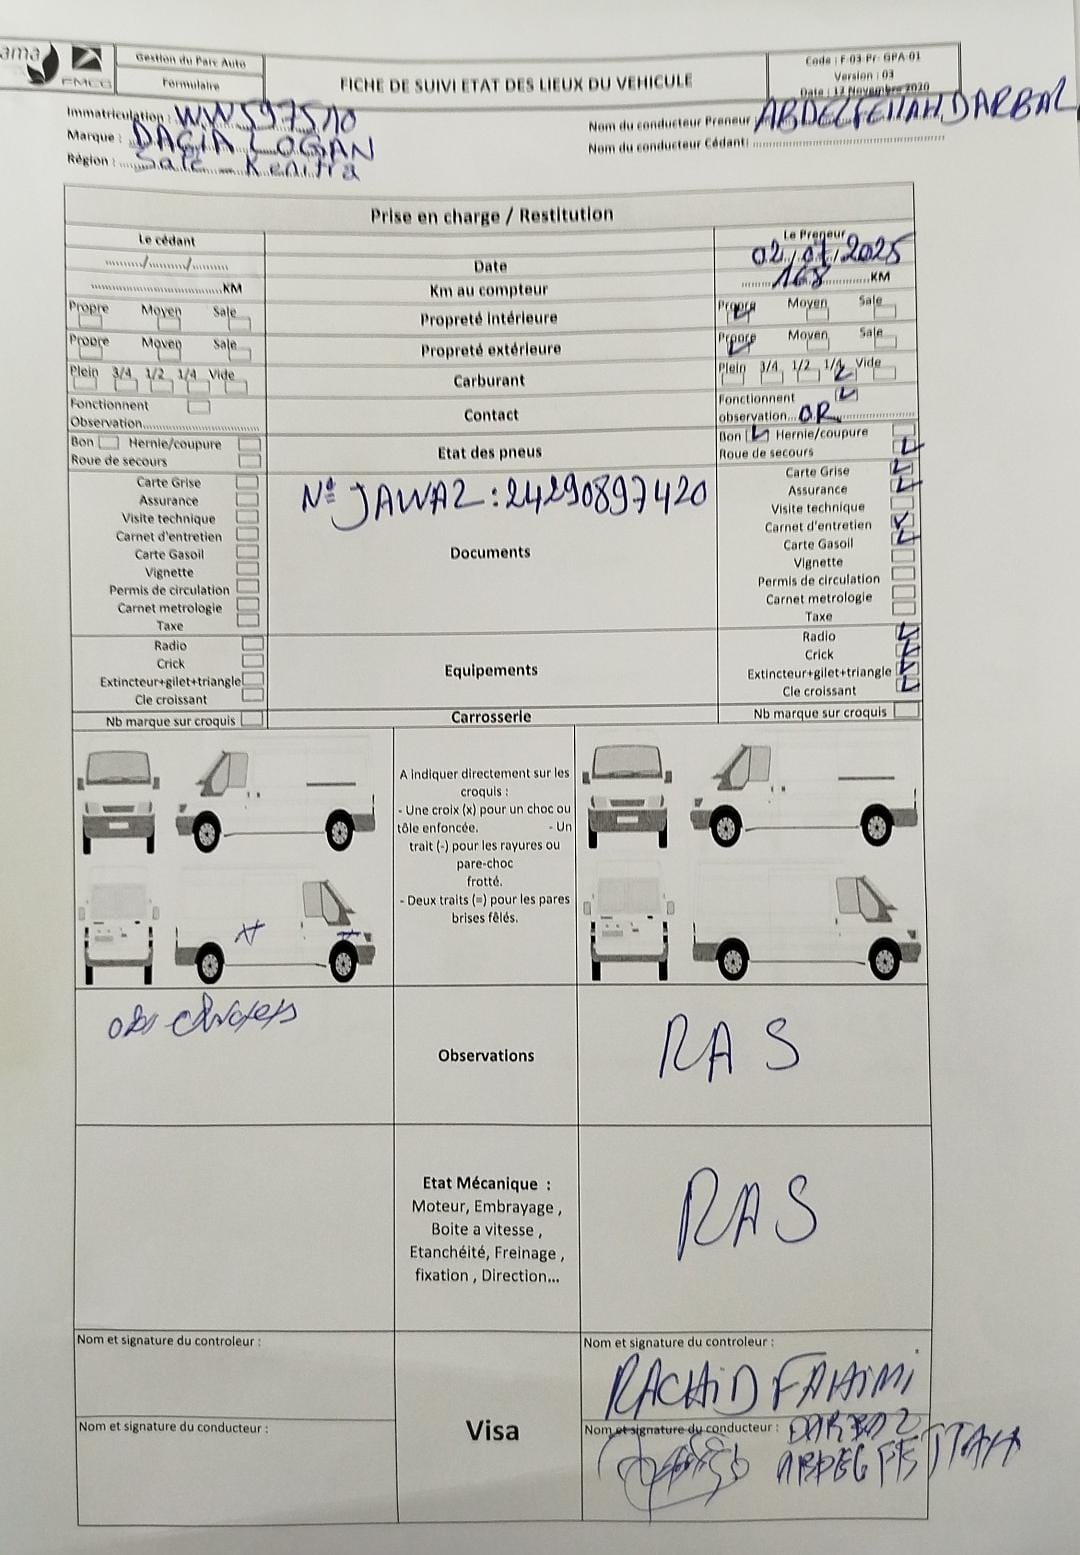 ama
FMCG
Gestion du Parc Auto
Formulaire
FICHE DE SUIVI ETAT DES LIEUX DU VEHICULE
Code : F-03-Pr- GPA-01
Version : 03
Date : 12 Novembre 2020
Immatriculation : WW597510
Marque : DACIA LOGAN
Région : Salé - Kenitra
Nom du conducteur Preneur : ABDELFETTAH DARBAL
Nom du conducteur Cédant:
Prise en charge / Restitution
Le cédant
Le Preneur
......../......../........ Date 02/07/2025
KM Km au compteur 168 KM
Propre Moyen Sale Propreté intérieure Propre Moyen Sale
Propre Moyen Sale Propreté extérieure Propre Moyen Sale
Plein 3/4 1/2 1/4 Vide Carburant Plein 3/4 1/2 1/4 Vide
Fonctionnent Contact Fonctionnent
Observation observation...
Bon Hernie/coupure Etat des pneus Bon Hernie/coupure
Roue de secours Roue de secours
Carte Grise
Assurance
Visite technique
Carnet d'entretien
Carte Gasoil
Vignette
Permis de circulation
Carnet metrologie
Taxe
N° JAWAZ : 24290897420
Documents
Carte Grise
Assurance
Visite technique
Carnet d'entretien
Carte Gasoil
Vignette
Permis de circulation
Carnet metrologie
Taxe
Radio
Crick
Extincteur+gilet+triangle
Cle croissant
Equipements
Radio
Crick
Extincteur+gilet+triangle
Cle croissant
Nb marque sur croquis Carrosserie Nb marque sur croquis
A indiquer directement sur les
croquis :
- Une croix (x) pour un choc ou
tôle enfoncée. - Un
trait (-) pour les rayures ou
pare-choc
frotté.
- Deux traits (=) pour les pares
brises fêlés.
Observations
RAS
Etat Mécanique :
Moteur, Embrayage ,
Boite a vitesse ,
Etanchéité, Freinage ,
fixation , Direction...
RAS
Nom et signature du controleur :
Nom et signature du conducteur :
Visa
Nom et signature du controleur :
RACHID FAHIMI
Nom et signature du conducteur : DARBAL
ABDELFETTAH